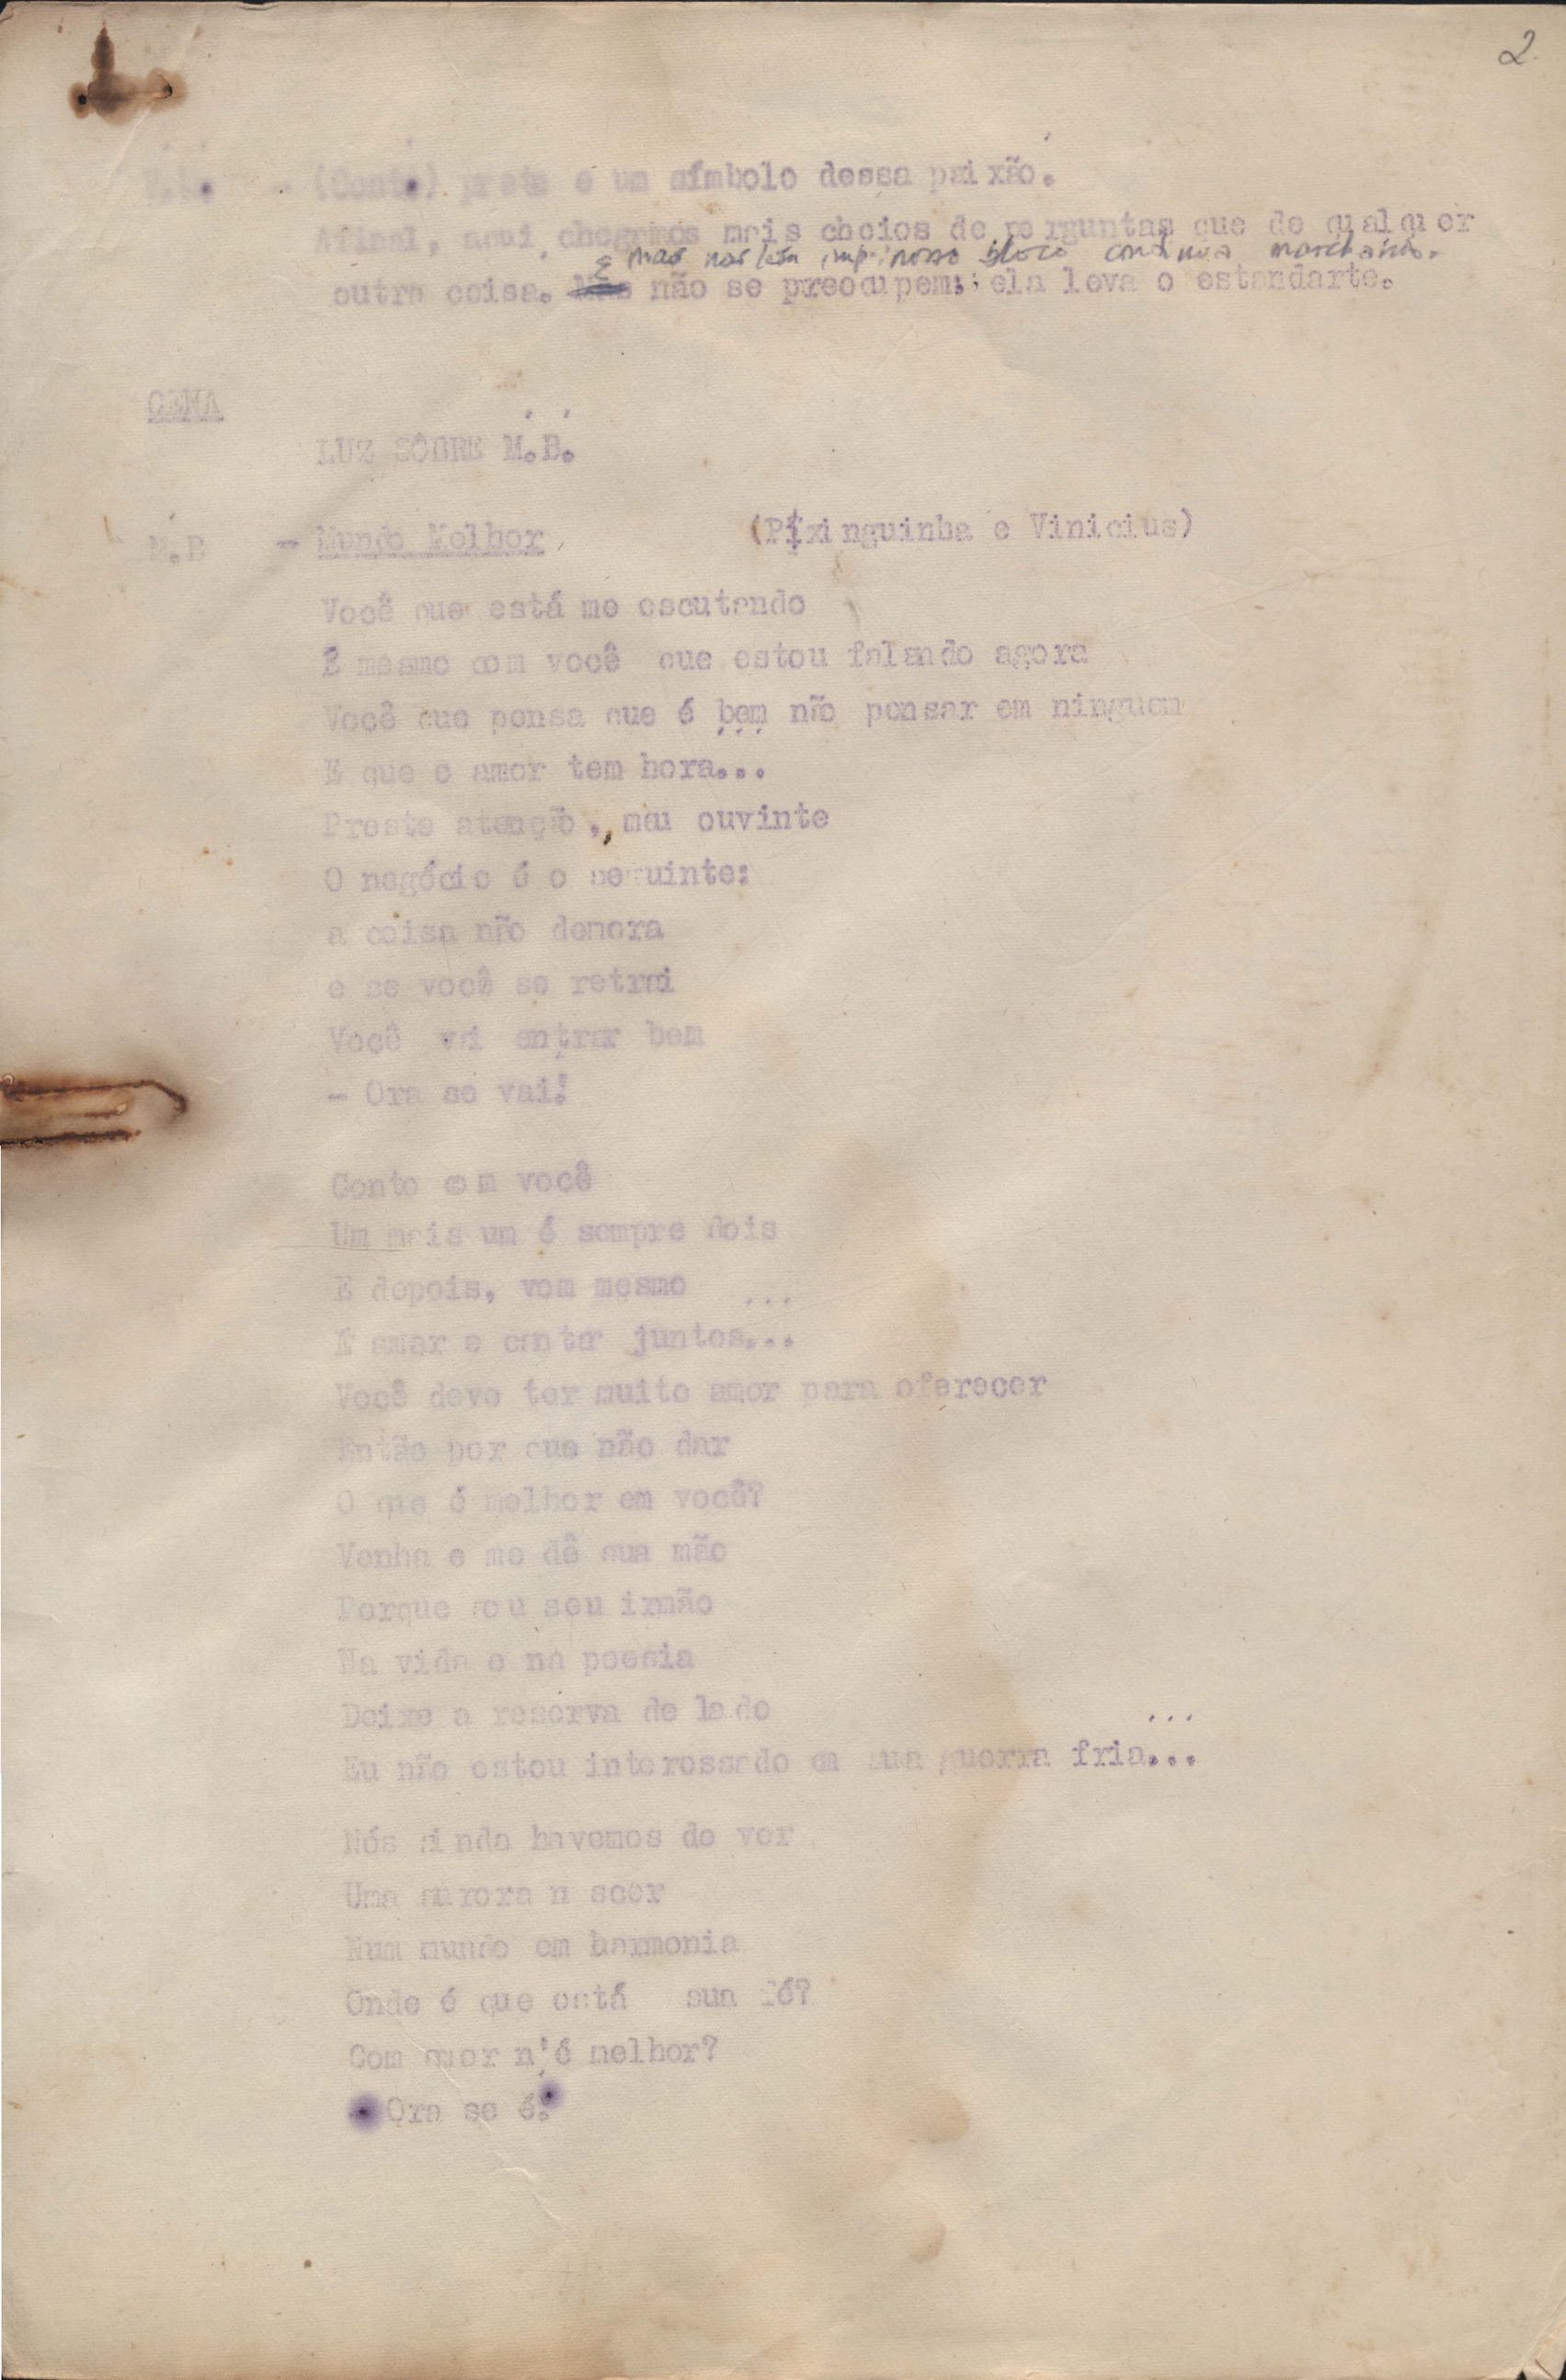 2.
(Cont.) preta é um símbolo dessa paixão.
Afinal, aqui chegamos mais cheios de perguntas que de qualquer
mas não tem imp. nosso bloco continua marchando.
outra coisa. E não se preocupem: ela leva o estandarte.
CENA
LUZ SÔBRE M.B.
M.B - Mundo Melhor (Pixinguinha e Vinicius)
Você que está me escutando
É mesmo com você que estou falando agora
Você que pensa que é bem não pensar em ninguem
E que o amor tem hora...
Preste atenção, meu ouvinte
O negócio é o seguinte:
a coisa não demora
e se você se retrai
Você vai entrar bem
- Ora se vai!
Conto com você
Um mais um é sempre dois
E depois, vem mesmo
É amar e cantar juntos...
Você deve ter muito amor para oferecer
Então por que não dar
O que é melhor em você?
Venha e me dê sua mão
Porque sou seu irmão
Na vida e na poesia
Deixe a reserva de lado
Eu não estou interessado em sua guerra fria...
Nós ainda havemos de ver
Uma aurora nascer
Num mundo em harmonia
Onde é que está sua fé?
Com amor n'é melhor?
- Ora se é!